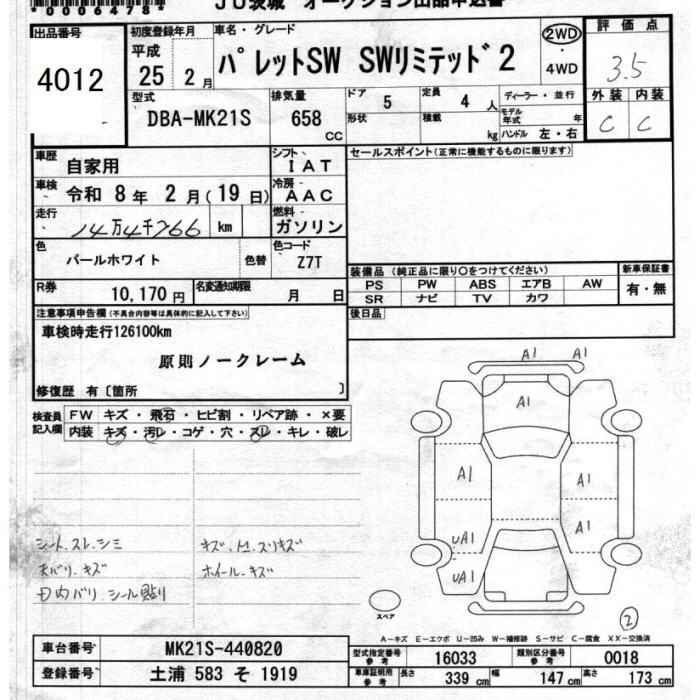 *0006478* JU茨城 オークション出品申込書
出品番号 4012
初度登録年月 平成 25 2月
車名・グレード パレットSW SWリミテッド2
2WD・4WD
評価点 3.5
外装 C 内装 C
型式 DBA-MK21S
排気量 658 CC
ドア 5 形状
定員 4人 積載 kg
ディーラー・並行
モデル年式 年
ハンドル 左・右
車歴 自家用
シフト IAT
車検 令和 8年 2月(19日)
冷房 AAC
走行 14万4千766 km
燃料 ガソリン
色 パールホワイト 色替
色コード Z7T
R券 10,170円
名変通知期限 月 日
セールスポイント(正常に機能するものに限ります)
装備品(純正品に限り○をつけてください)
PS PW ABS エアB AW
SR ナビ TV カワ
新車保証書 有・無
後日品
注意事項申告欄(不具合内容等は具体的に記入して下さい)
車検時走行126100km
原則ノークレーム
修復歴 有〔箇所 〕
検査員記入欄
FW キズ・飛石・ヒビ割・リペア跡・×要
内装 キズ・汚レ・コゲ・穴・スレ・キレ・破レ
シート.スレ.シミ
天バリ.キズ
内バリ シール貼り
ホイール.キズ
A1 A1
A1
A1 A1
A1
UA1 A1
UA1
スペア
②
A-キズ E-エクボ U-凹み W-補修跡 S-サビ C-腐食 XX-交換済
車台番号 MK21S-440820
登録番号 土浦 583 そ 1919
型式指定番号 参考 16033
類別区分番号 参考 0018
車庫証明用 参考 長さ 339 cm 幅 147 cm 高さ 173 cm